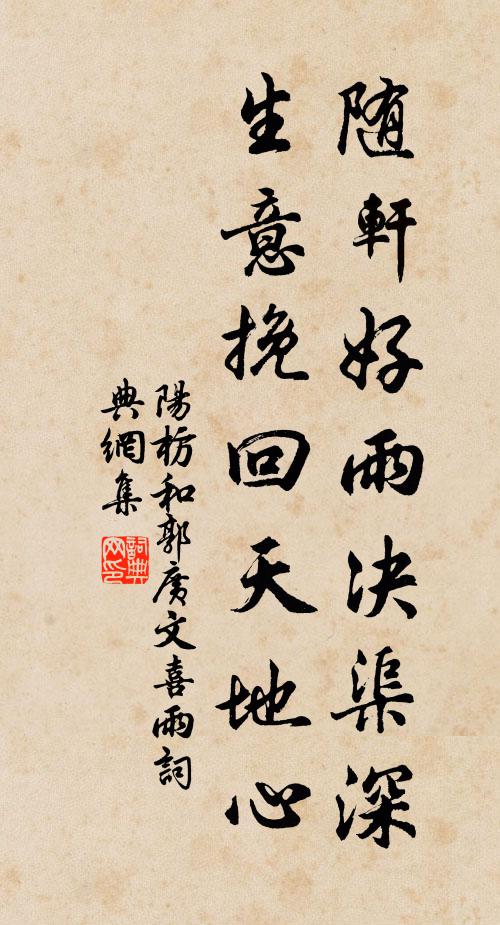 随軒好雨决渠深
生意挽回天地心
陽枋和郭廣文喜雨詞
典網集
詞典网印